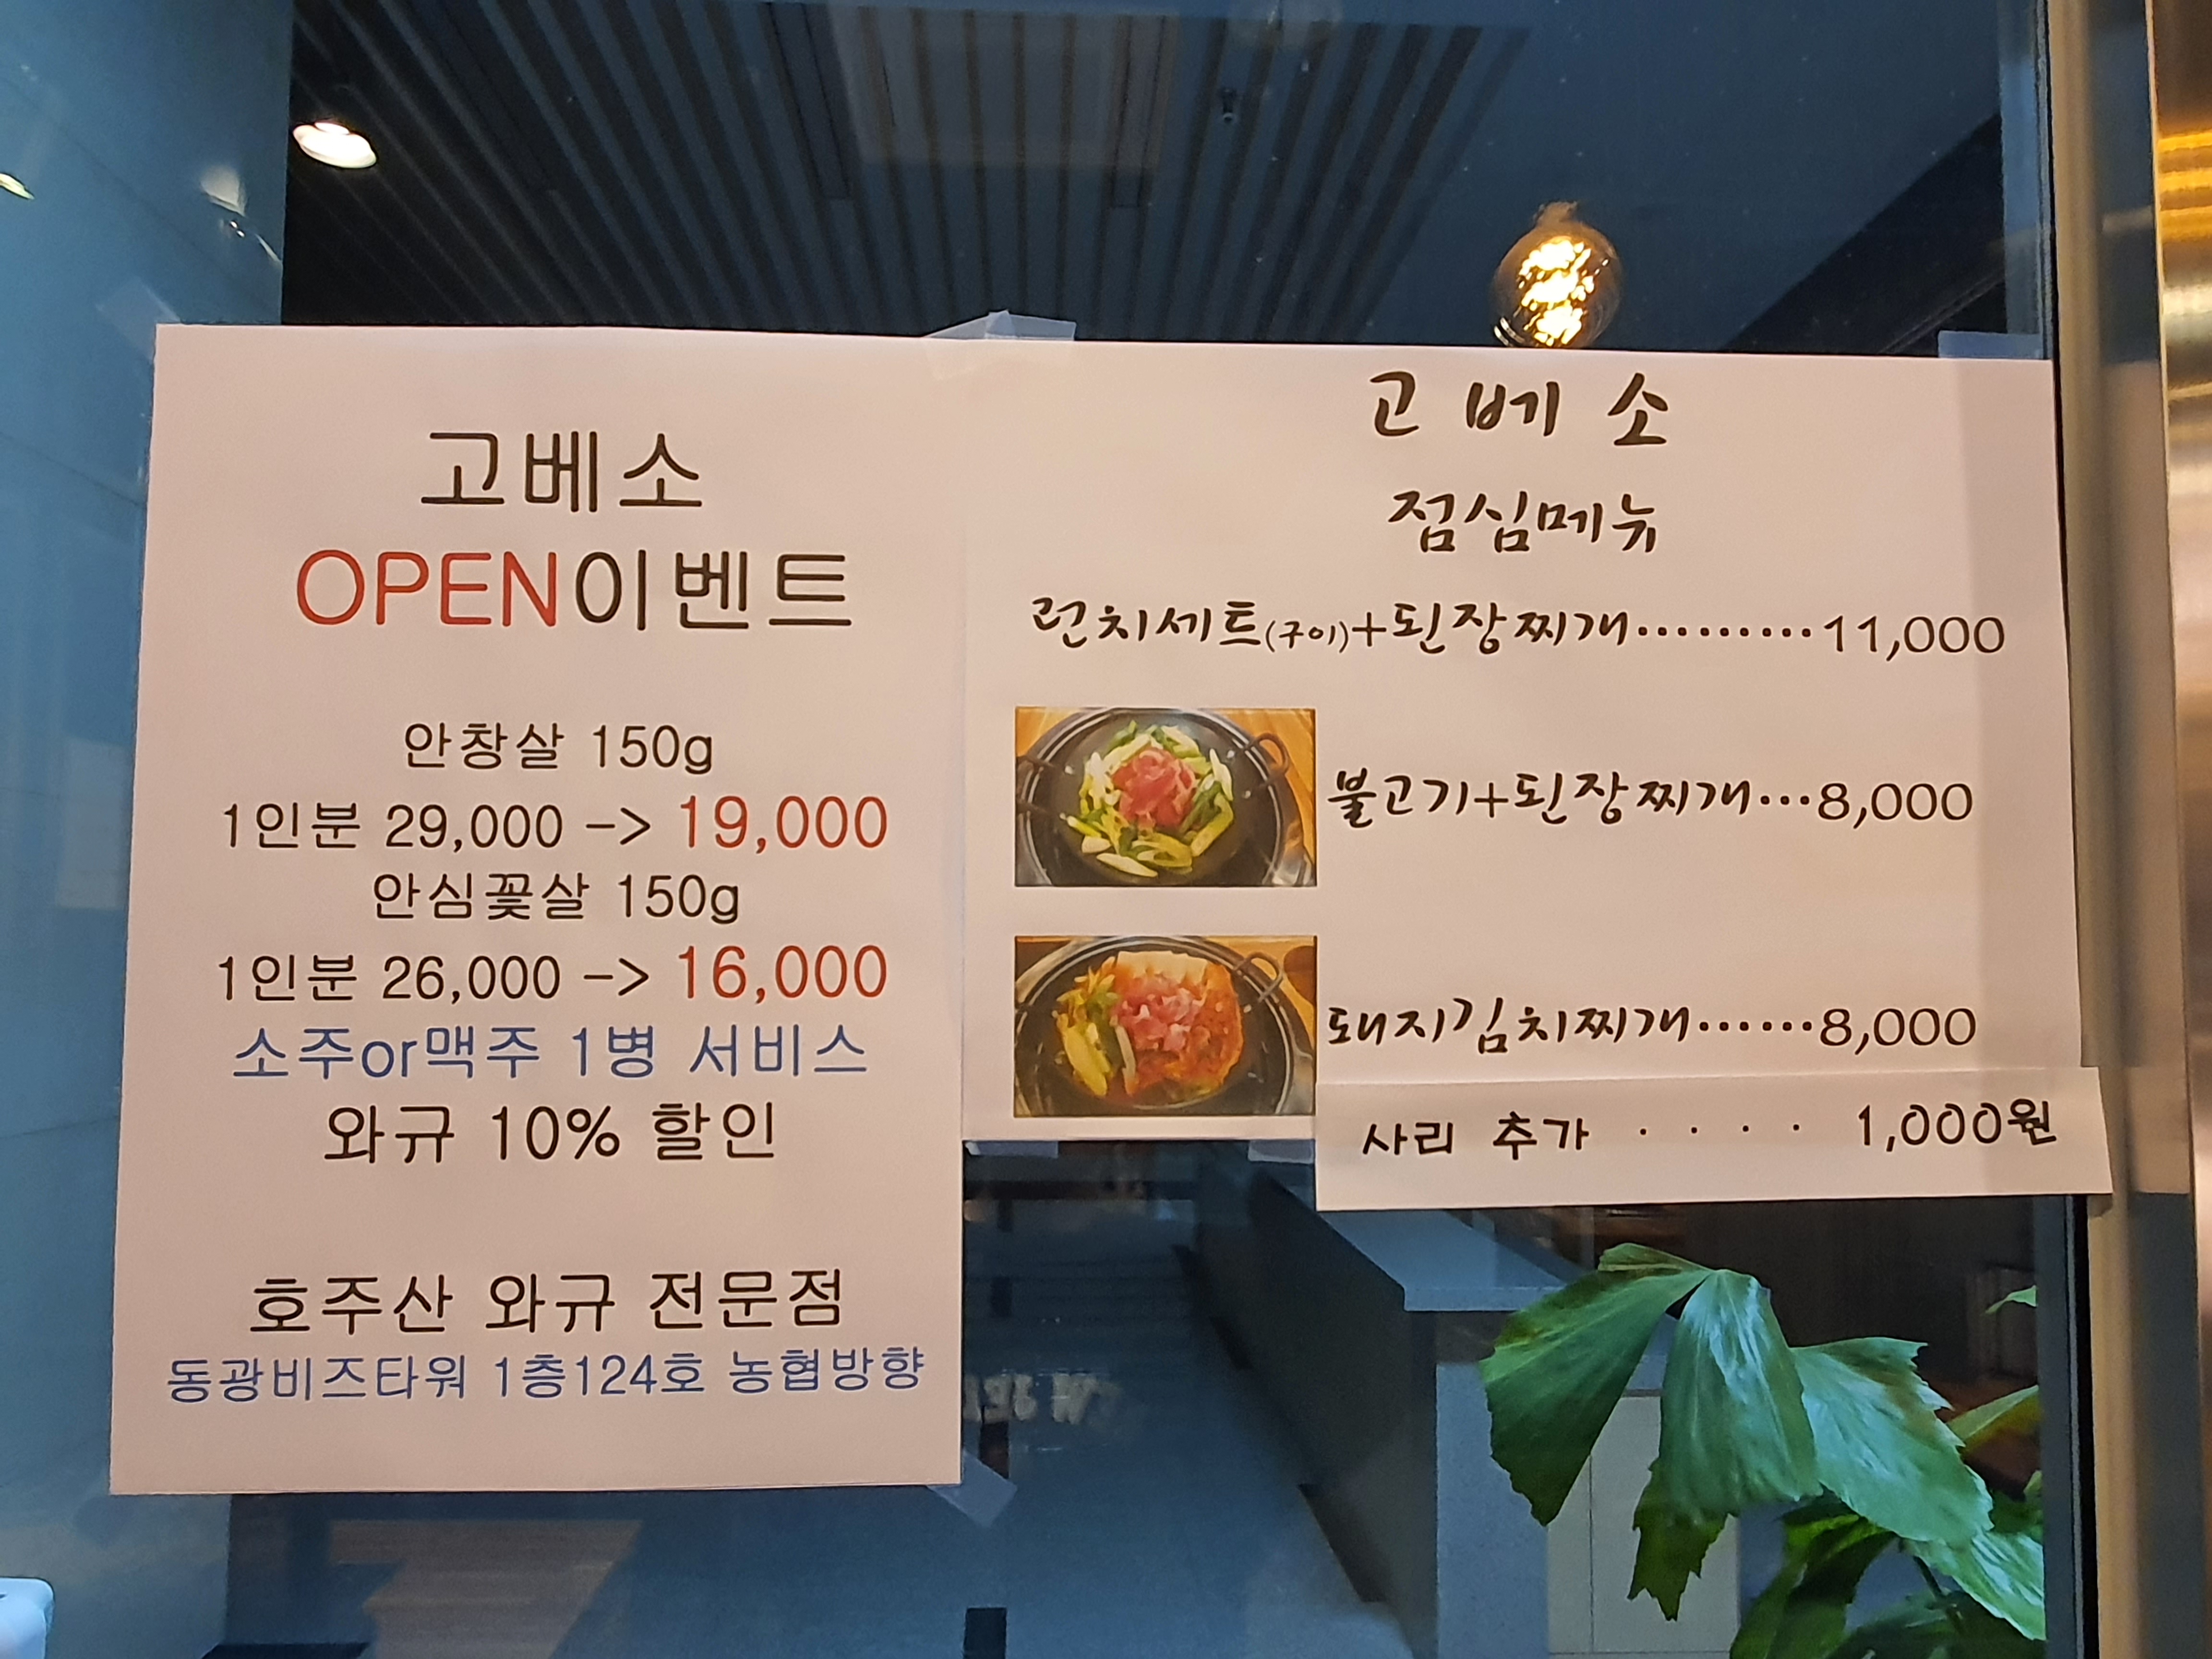 고베소
OPEN이벤트
안창살 150g
1인분 29,000 -> 19,000
안심꽃살 150g
1인분 26,000 -> 16,000
소주or맥주 1병 서비스
와규 10% 할인
호주산 와규 전문점
동광비즈타워 1층124호 농협방향
고 베 소
점심메뉴
런치세트(구이)+된장찌개·········11,000
불고기+된장찌개···8,000
돼지김치찌개······8,000
사리 추가 · · · · 1,000원